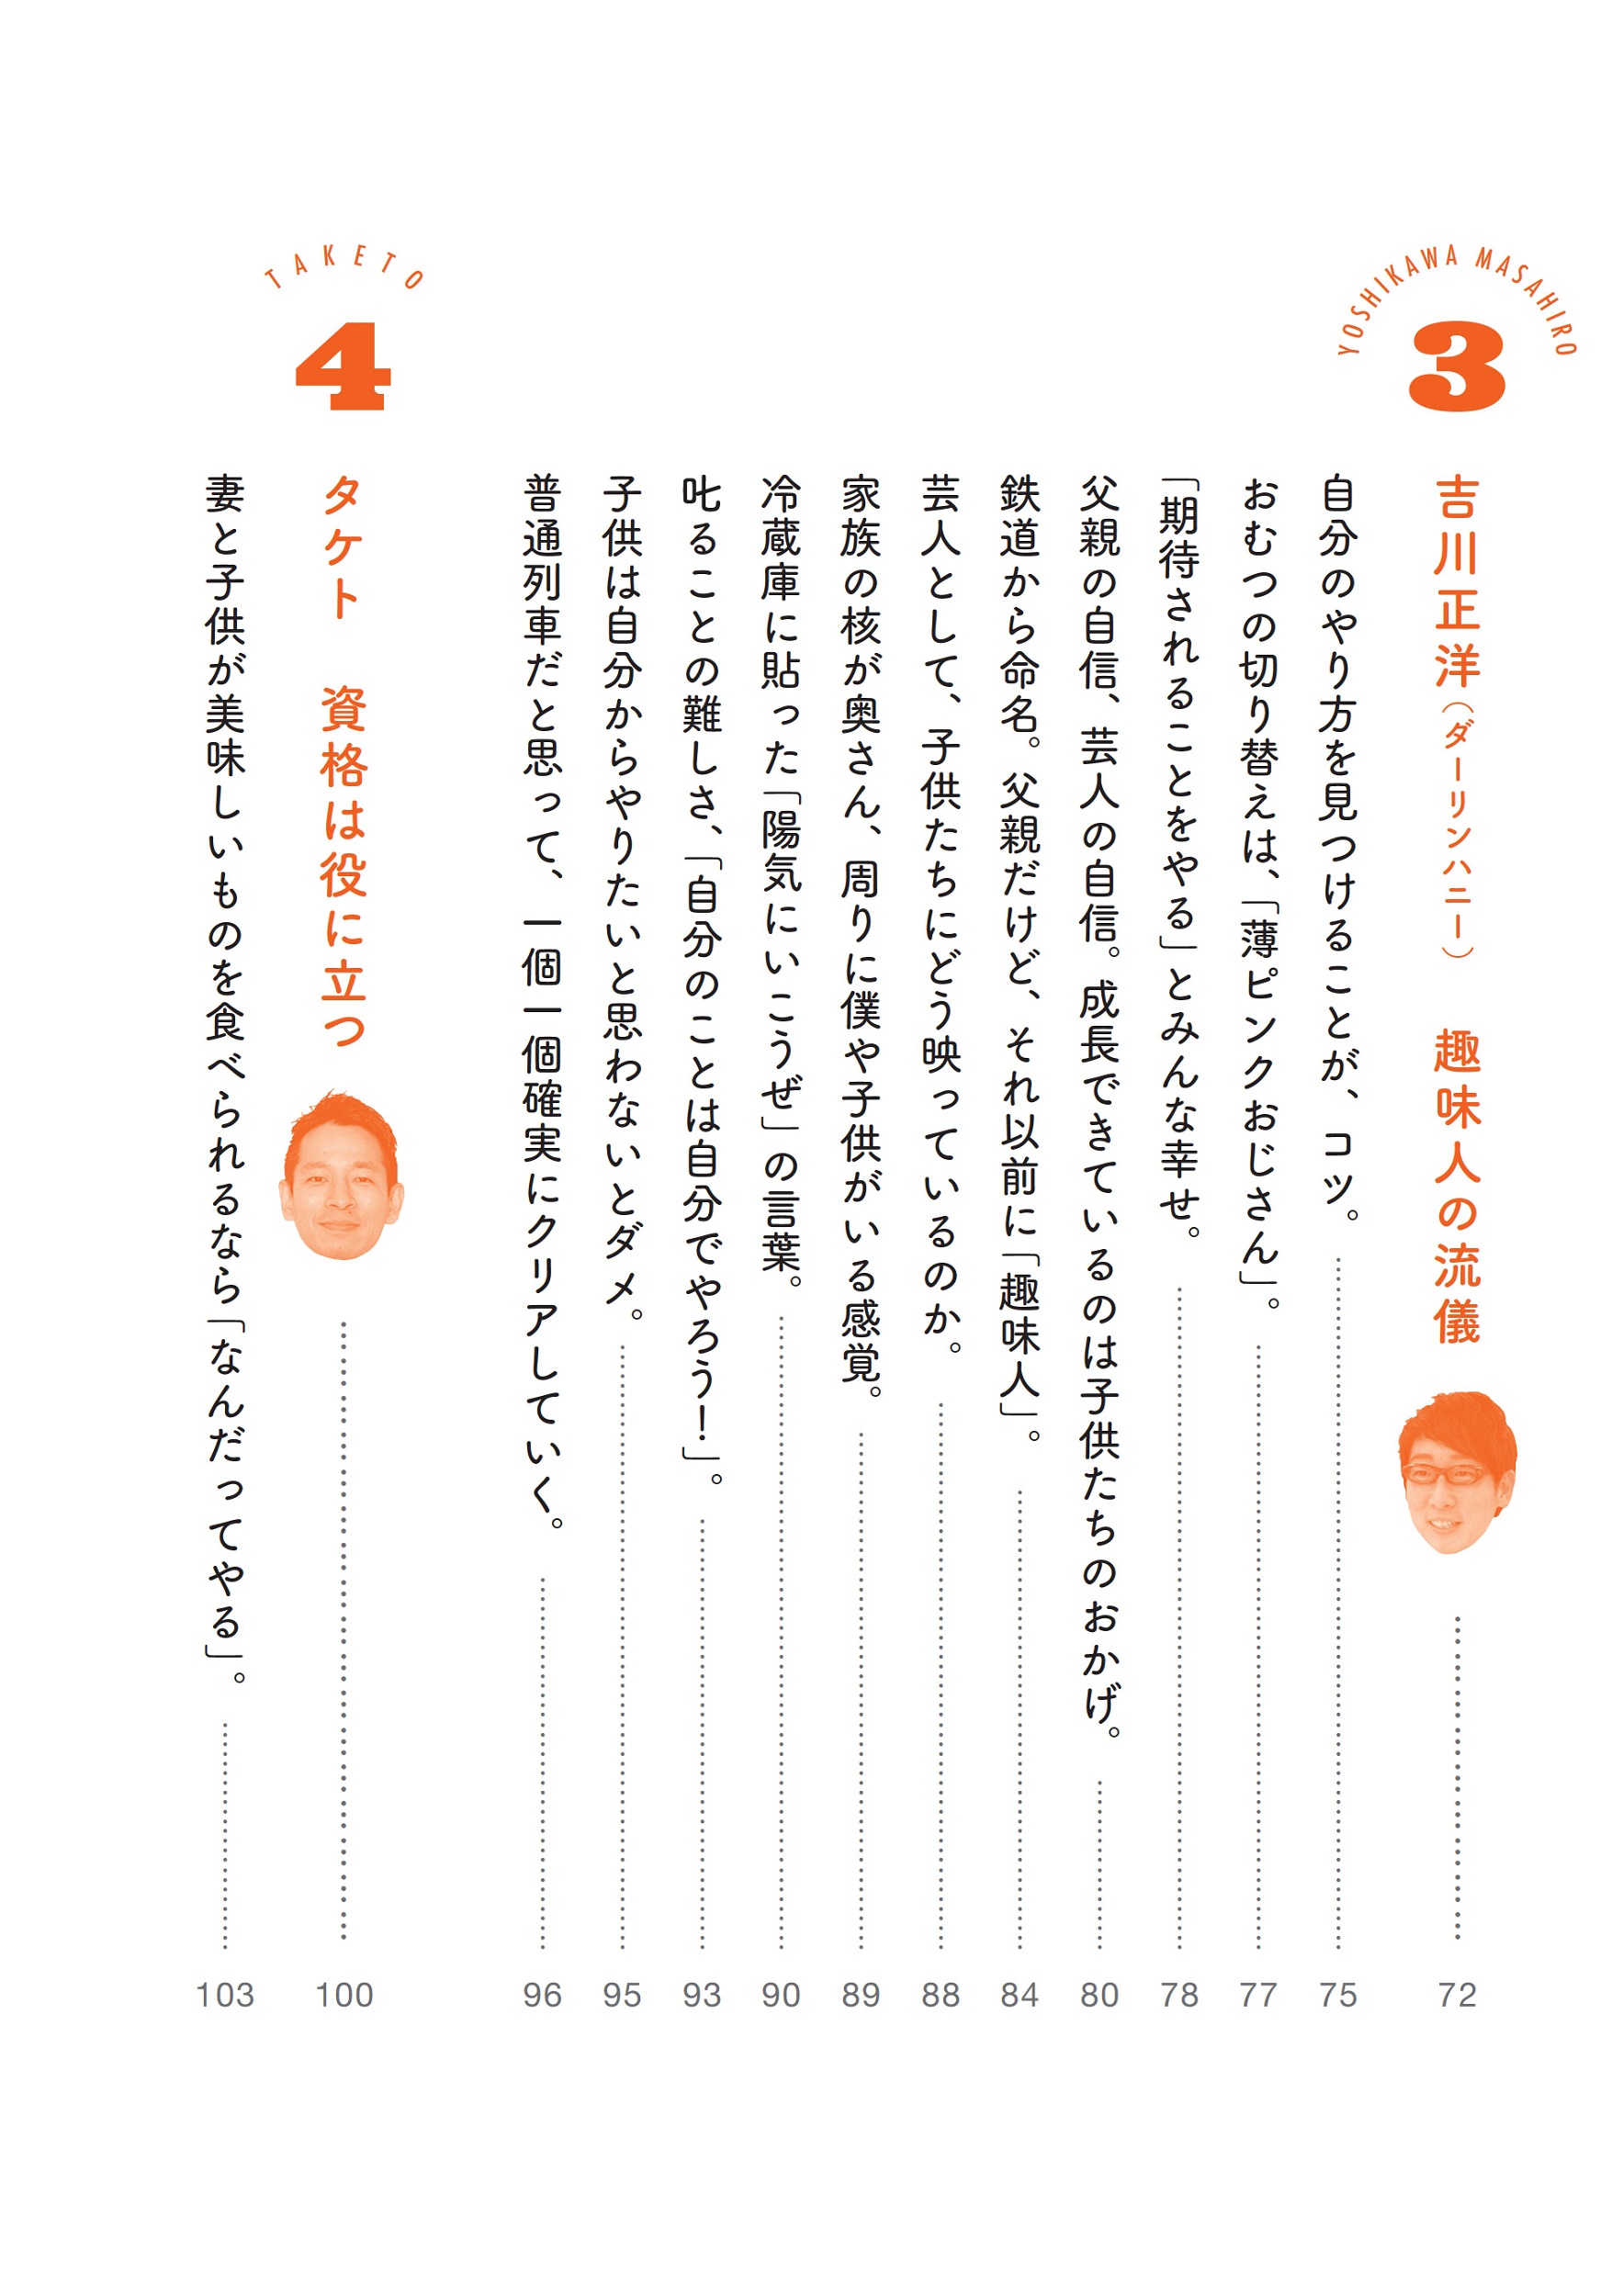 YOSHIKAWA MASAHIRO
3
吉川正洋（ダーリンハニー） 趣味人の流儀 72
自分のやり方を見つけることが、コツ。 75
おむつの切り替えは、「薄ピンクおじさん」。 77
「期待されることをやる」とみんな幸せ。 78
父親の自信、芸人の自信。成長できているのは子供たちのおかげ。 80
鉄道から命名。父親だけど、それ以前に「趣味人」。 84
芸人として、子供たちにどう映っているのか。 88
家族の核が奥さん、周りに僕や子供がいる感覚。 89
冷蔵庫に貼った「陽気にいこうぜ」の言葉。 90
叱ることの難しさ、「自分のことは自分でやろう！」。 93
子供は自分からやりたいと思わないとダメ。 95
普通列車だと思って、一個一個確実にクリアしていく。 96
TAKETO
4
タケト 資格は役に立つ 100
妻と子供が美味しいものを食べられるなら「なんだってやる」。 103